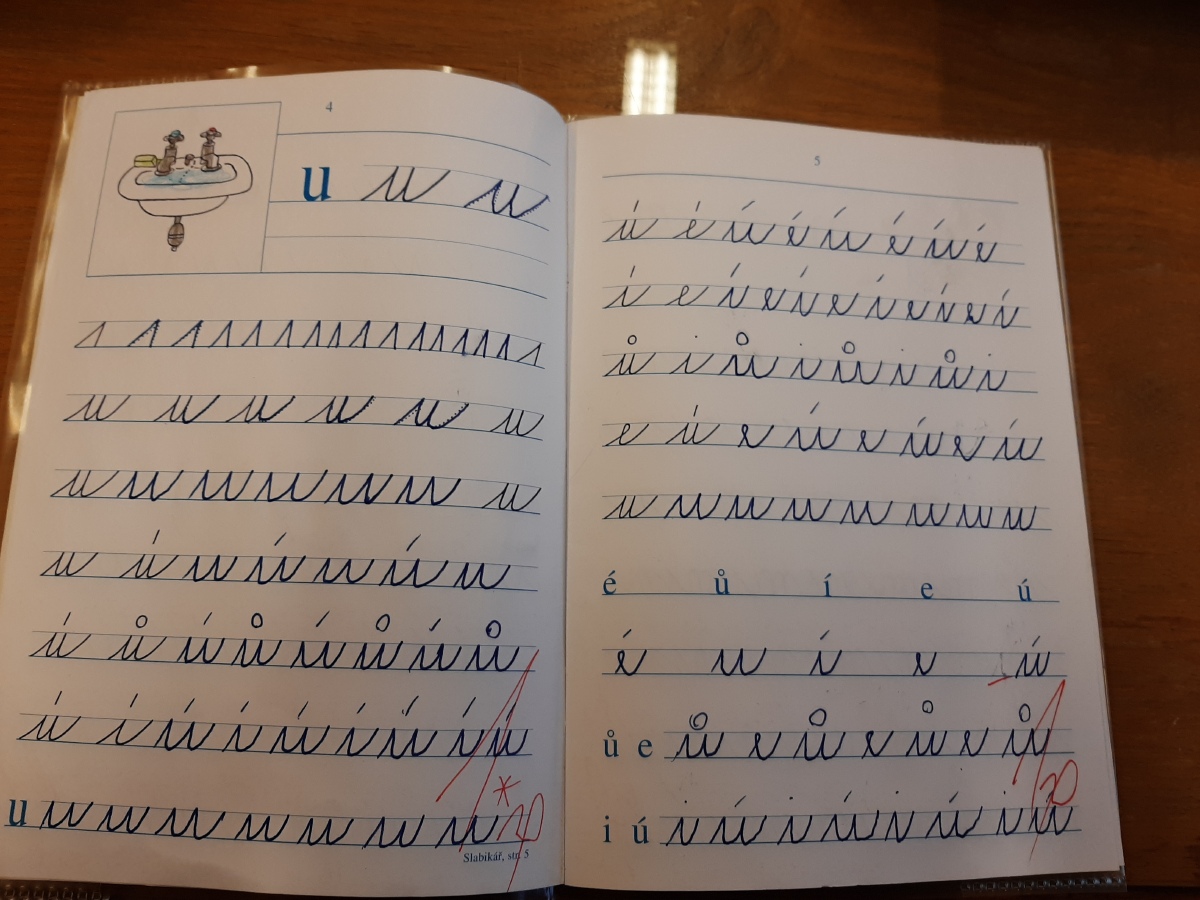 4
u u u
u u u u u u
u u u u u u u
u ú u ú u ú u
ú ů ú ů ú ů ú ů
ú í ú í ú í ú í ú
u u u u u u u u
Slabikář, str. 5
5
ú é ú é ú é ú é
í e í e í e í e í e í
ů i ů i ů i ů i
e ú e ú e ú e ú
u u u u u u u u
é ů í e ú
é u í e ú
ů e ů e ů e ů e ů
i ú i ú i ú i ú i ú